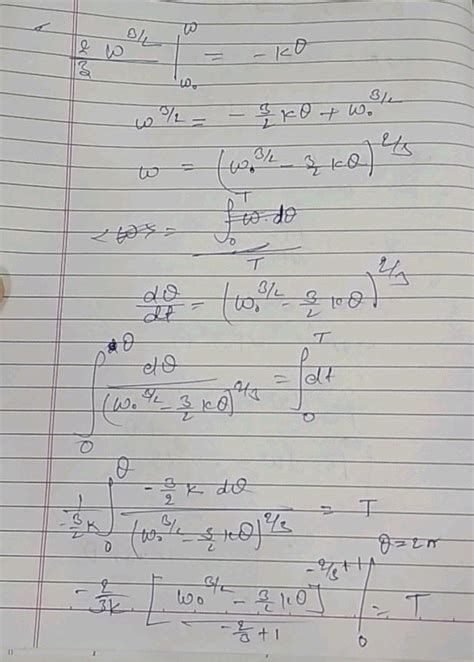 2/3 ω^3/2 |_ω₀^ω = - kθ
ω^3/2 = - 3/2 kθ + ω₀^3/2
ω = (ω₀^3/2 - 3/2 kθ)^2/3
<ω> = ∫₀^T ω dθ / T
dθ/dt = (ω₀^3/2 - 3/2 kθ)^2/3
∫₀^θ dθ / (ω₀^3/2 - 3/2 kθ)^2/3 = ∫₀^T dt
1 / -3/2 k ∫₀^θ - 3/2 k dθ / (ω₀^3/2 - 3/2 kθ)^2/3 = T
- 2/3k [ω₀^3/2 - 3/2 kθ]^-2/3 + 1 / -2/3 + 1 |₀^θ=2π = T